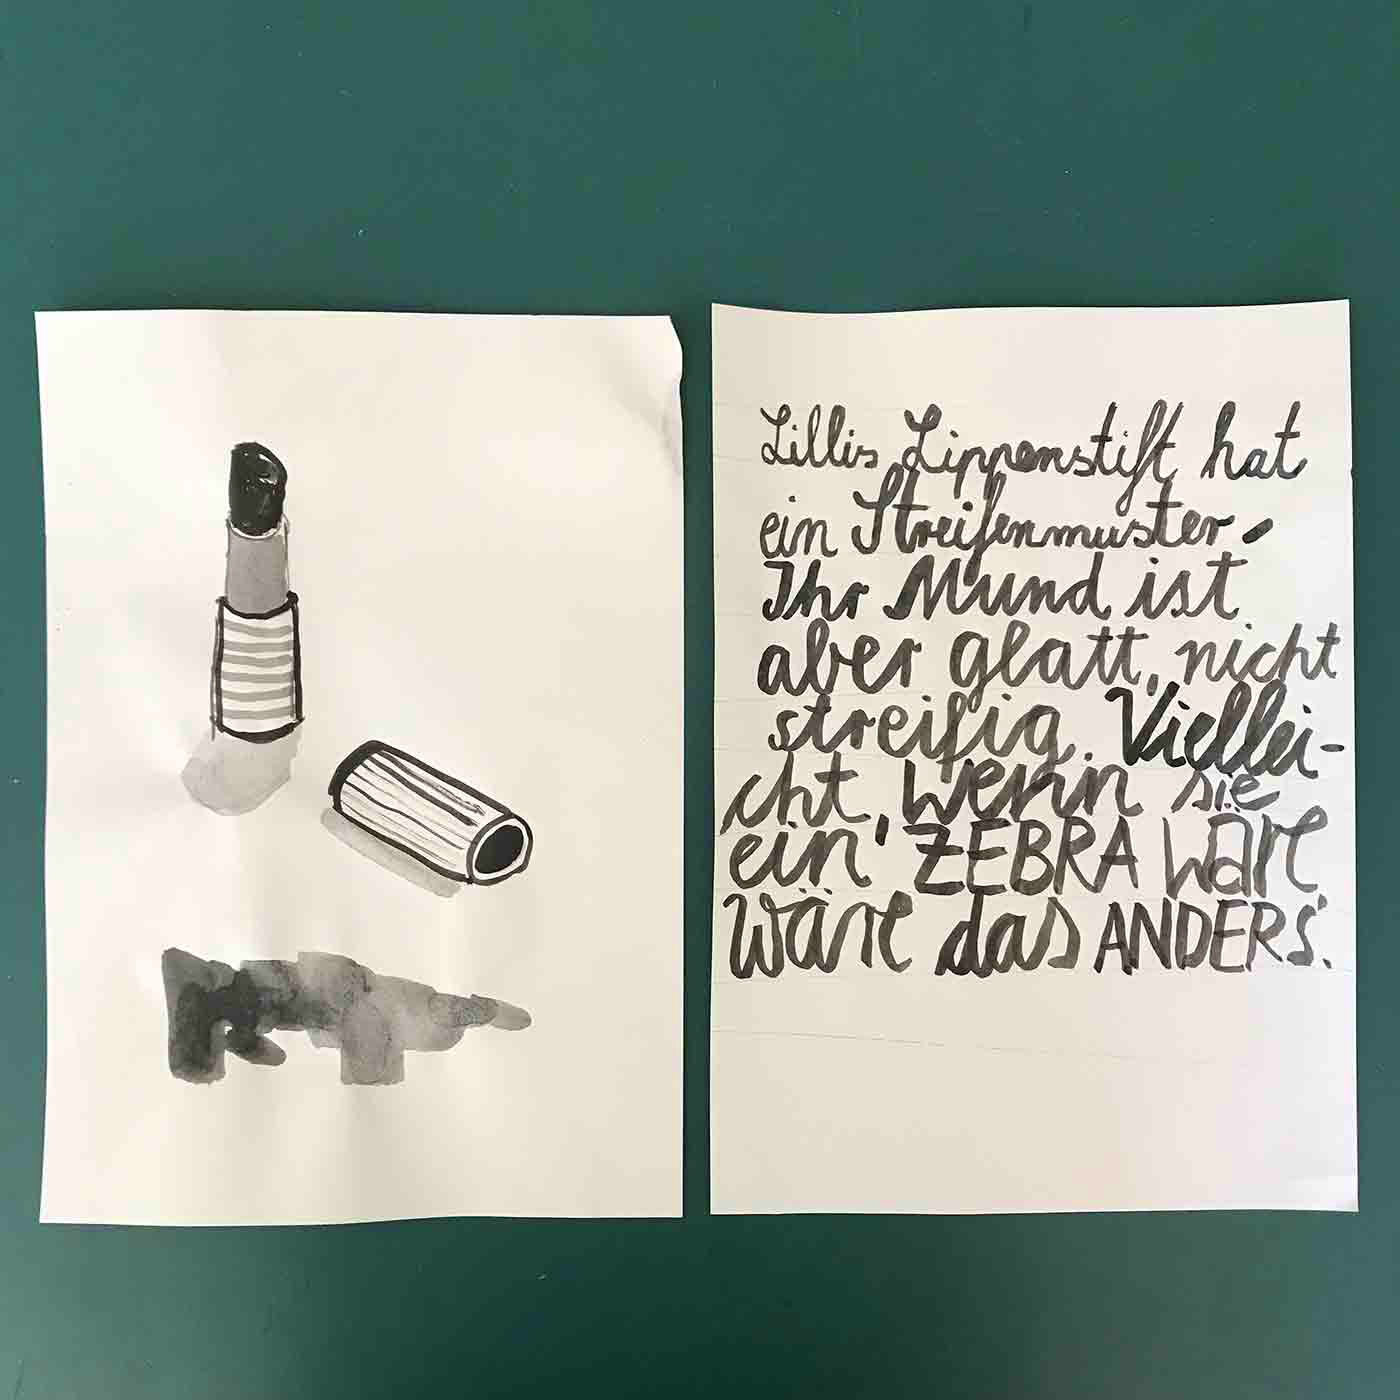 Lillis Lippenstift hat
ein Streifenmuster.
Ihr Mund ist
aber glatt, nicht
streifig. Viellei-
cht, wenn sie
ein' ZEBRA wäre
wäre das ANDERS'.